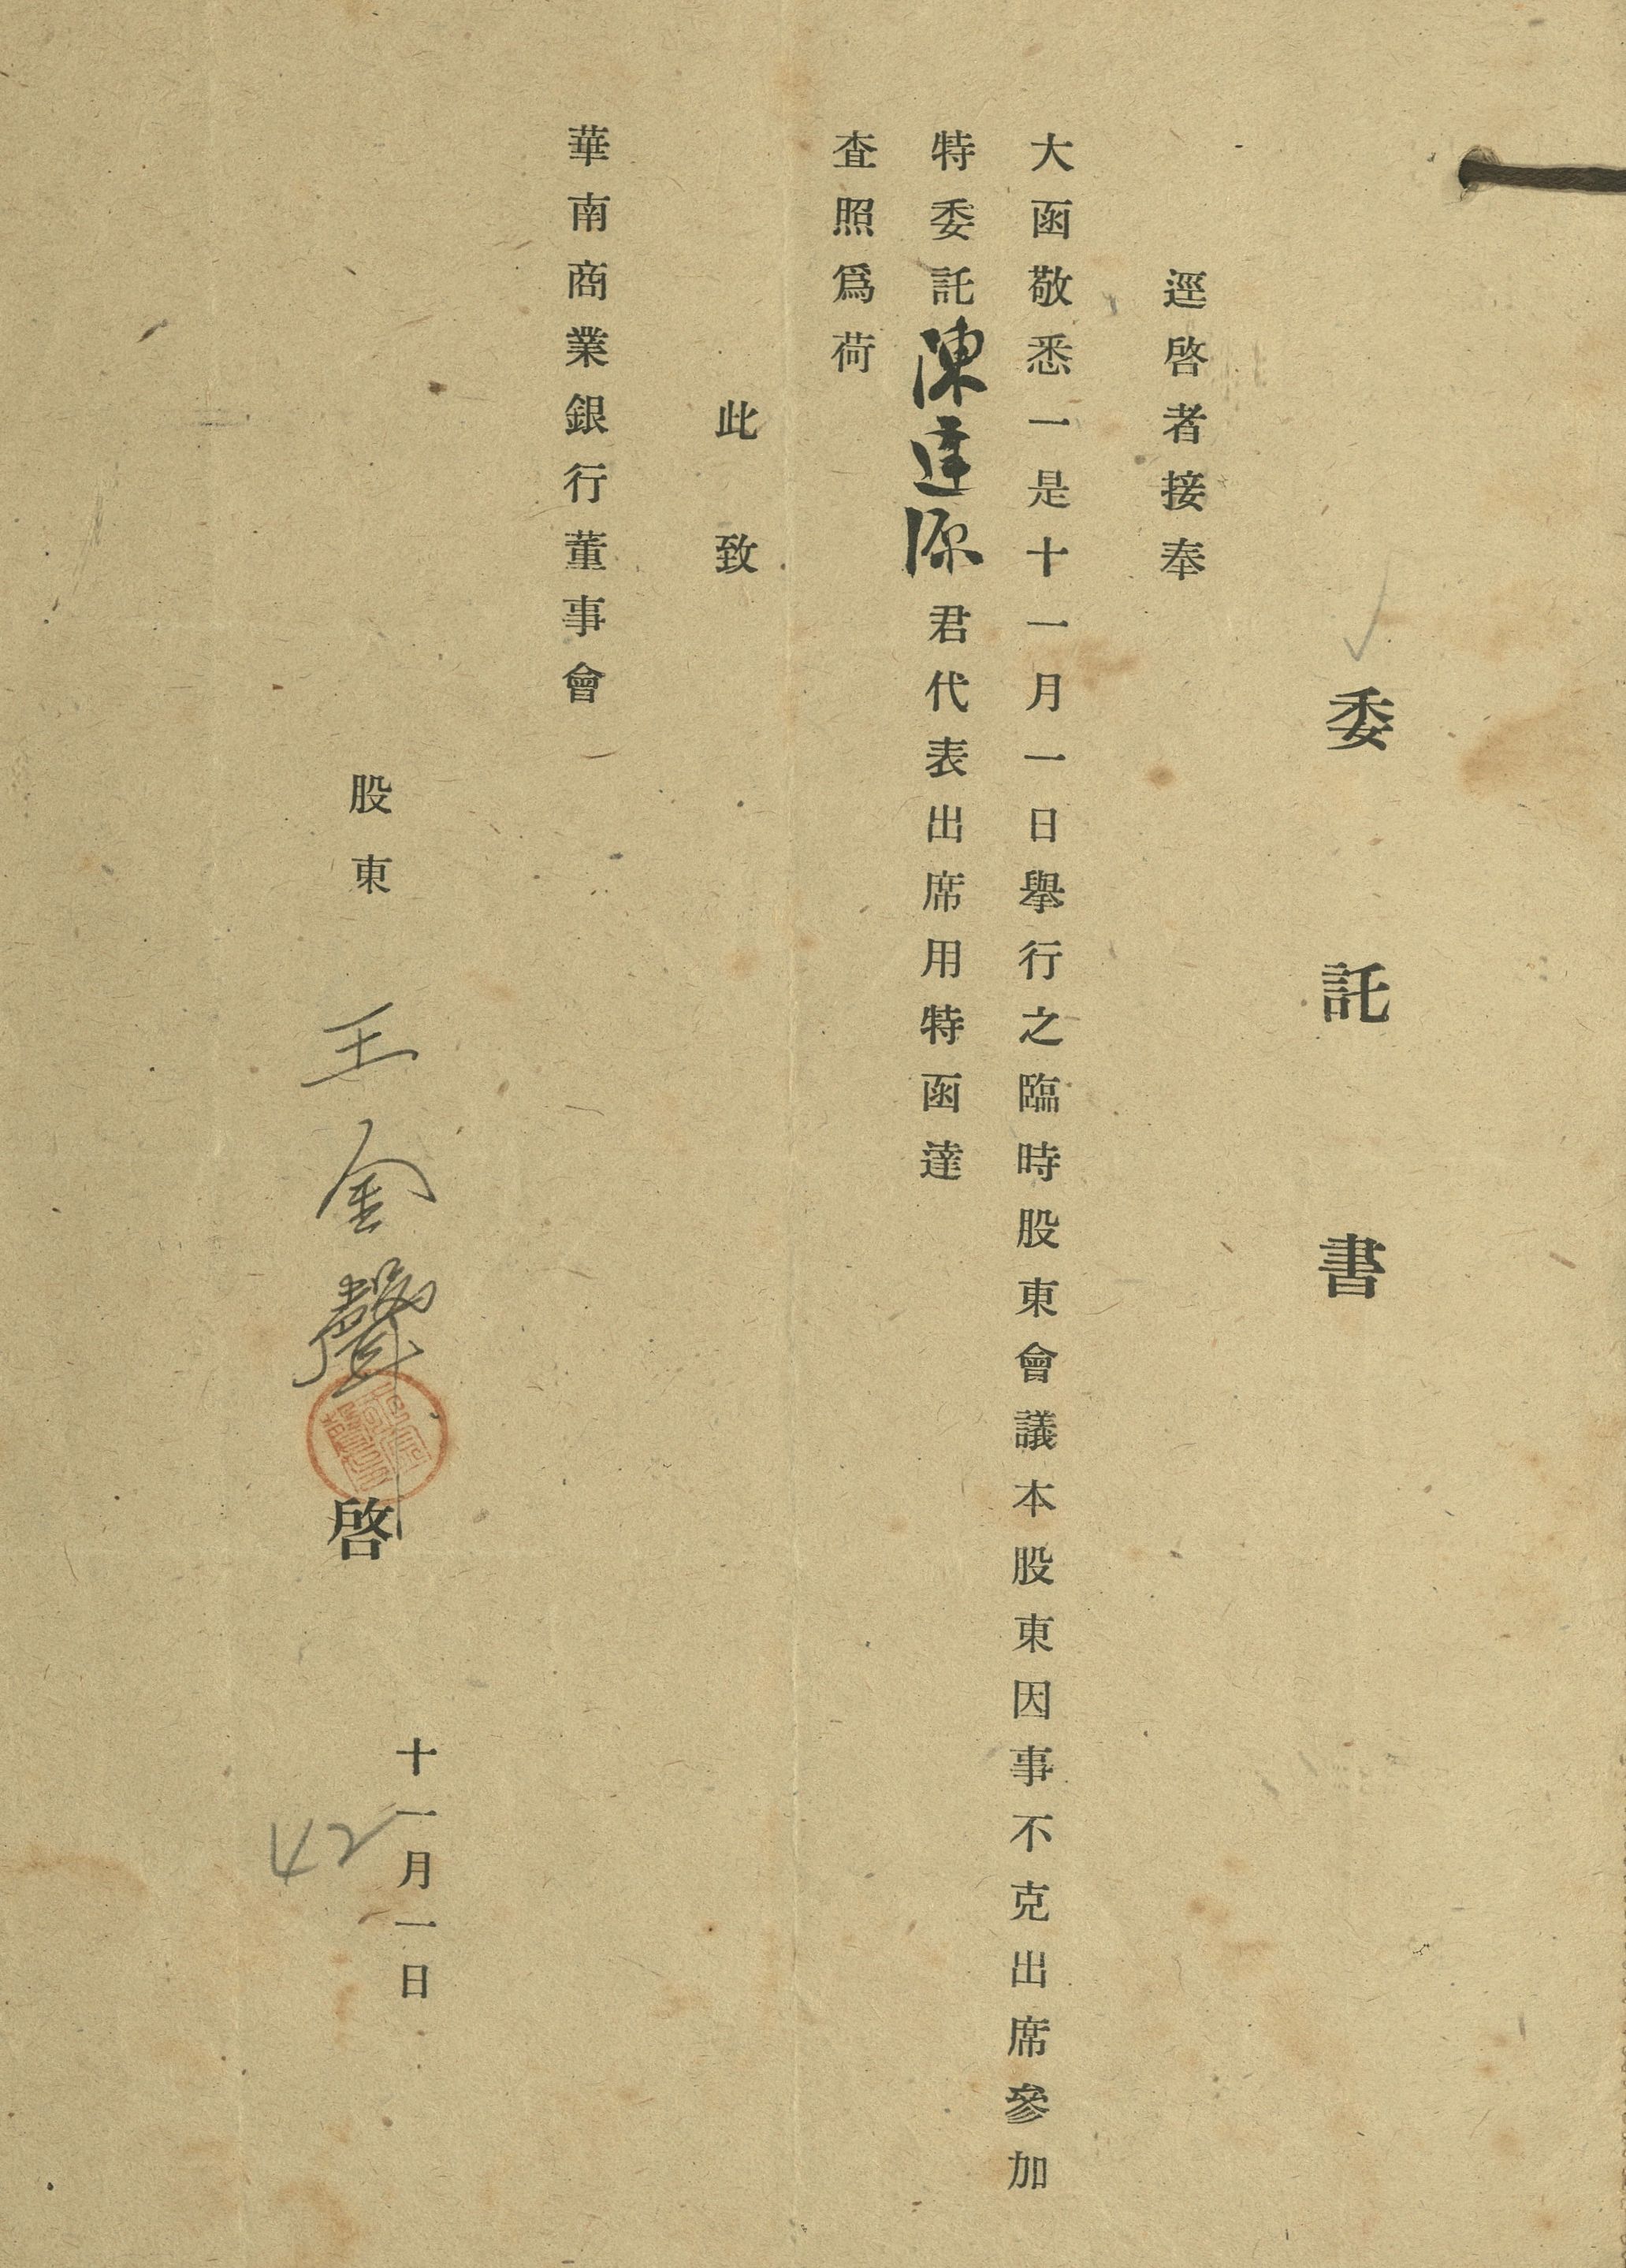 委託書
逕啓者接奉
大函敬悉一是十一月一日舉行之臨時股東會議本股東因事不克出席參加
特委託陳逢源君代表出席用特函達
查照爲荷
此致
華南商業銀行董事會
股東 王金聲 啓
十一月一日
42